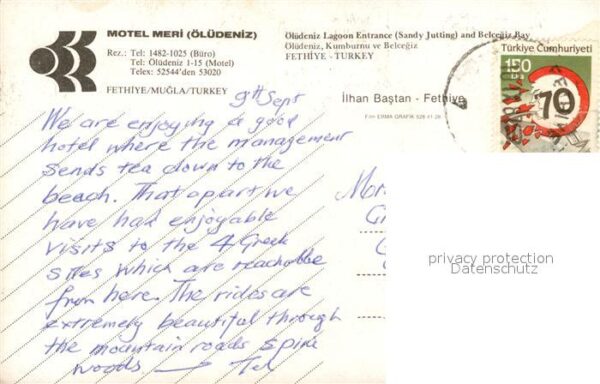 MOTEL MERİ (ÖLÜDENİZ)
Rez.: Tel: 1482-1025 (Büro)
Tel: Ölüdeniz 1-15 (Motel)
Telex: 52544'den 53020
FETHİYE/MUĞLA/TURKEY
Ölüdeniz Lagoon Entrance (Sandy Jutting) and Belceğiz Bay
Ölüdeniz, Kumburnu ve Belceğiz
FETHİYE - TURKEY
Türkiye Cumhuriyeti
150
70
İlhan Baştan - Fethiye
Film ERMA GRAFİK 528 41 26
9th Sept
We are enjoying a good
hotel where the management
sends tea down to the
beach. That apart we
have had enjoyable
visits to the 4 Greek
sites which are reachable
from here. The rides are
extremely beautiful through
the mountain roads & pine
woods
privacy protection
Datenschutz